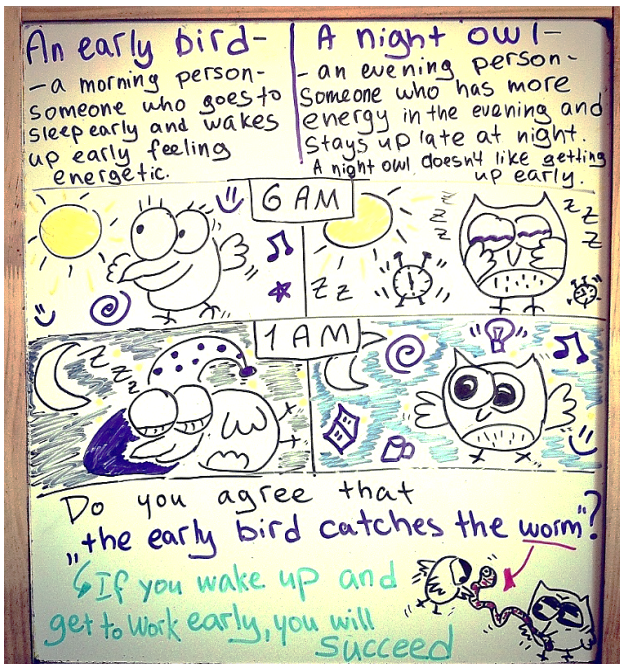 An early bird-
- a morning person-
someone who goes to
sleep early and wakes
up early feeling
energetic.
A night owl-
- an evening person-
Someone who has more
energy in the evening and
stays up late at night.
A night owl doesn't like getting
up early.
6 AM
z z z z
z z z
z z
1 AM
z z z
Do you agree that
"the early bird catches the worm"?
If you wake up and
get to work early, you will
succeed